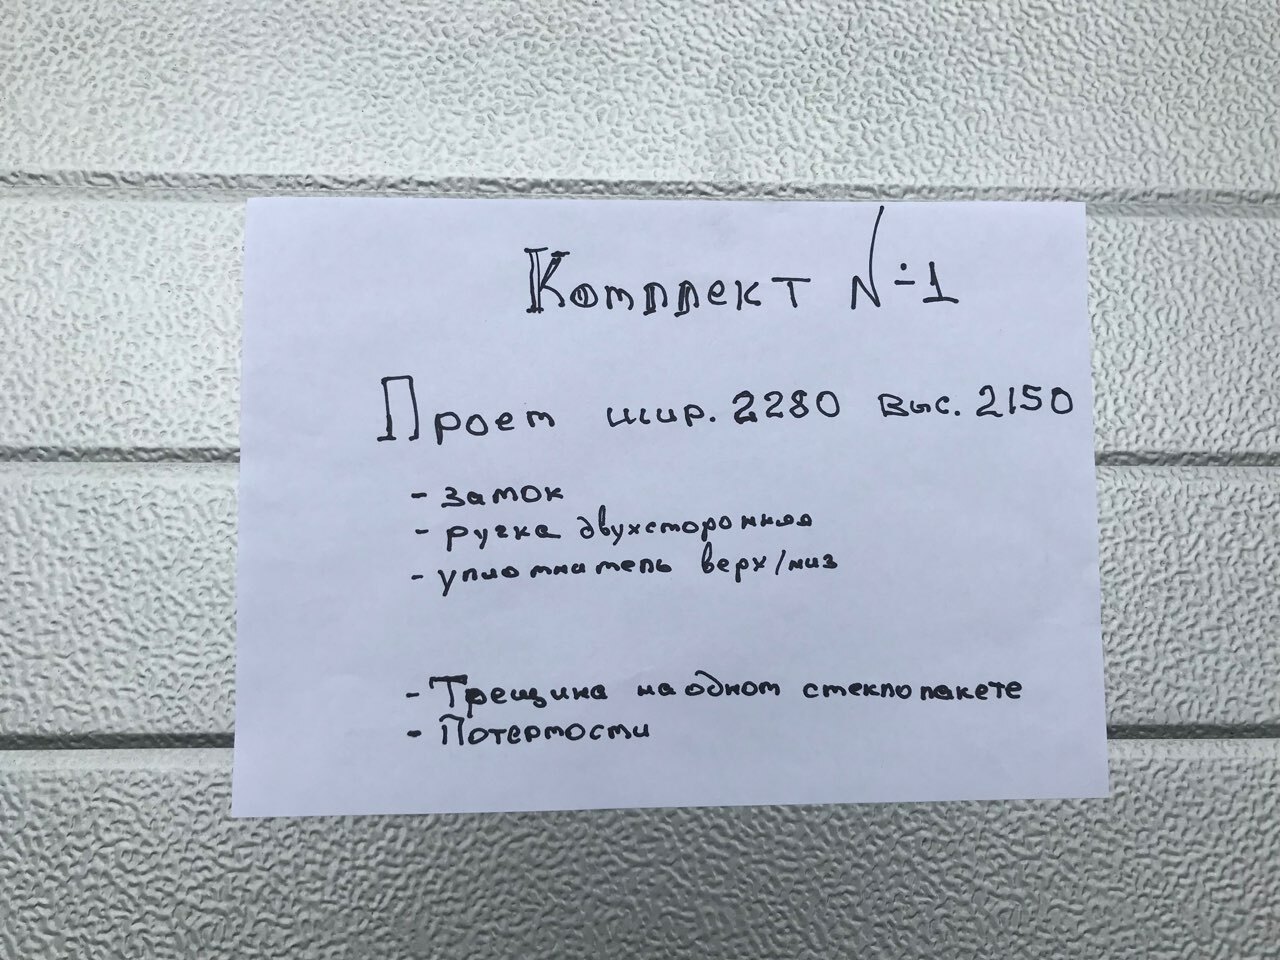 Комплект №1
Проем шир. 2280 выс. 2150
- замок
- ручка двухсторонняя
- уплотнитель верх/низ
- Трещина на одном стеклопакете
- Потертости